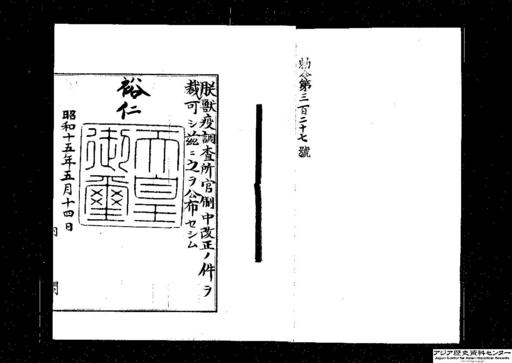 勅令第三百二十七號
朕獸疫調査所官制中改正ノ件ヲ
裁可シ茲ニ之ヲ公布セシム
裕仁
天皇御璽
昭和十五年五月十四日
アジア歴史資料センター
Japan Center for Asian Historical Records